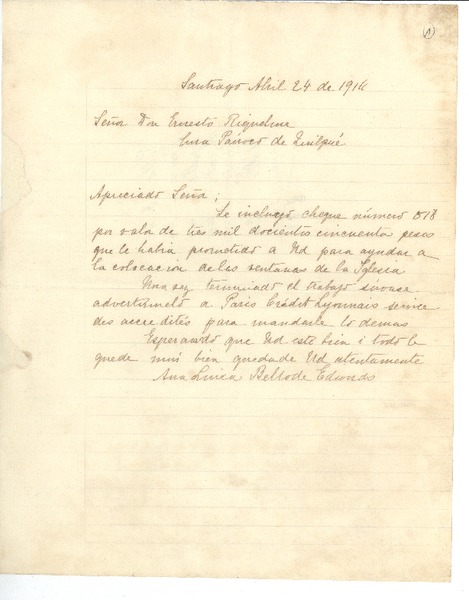 (1)
Santiago Abril 24 de 1914
Señor Don Ernesto Riquelme
Cura Párroco de Quilpué
Apreciado Señor;
Le incluyo cheque número 018
por valor de tres mil docientos cincuenta pesos
que le habia prometido a Ud para ayudar a
la colocacion de las ventanas de la Iglesia
Una vez terminado el trabajo sirvase
advertirmelo a Paris Crédit Lyonnais service
des accredités para mandarle lo demas
Esperando que Ud este bien i todo le
quede mui bien queda de Ud atentamente
Ana Luisa Bello de Edwards